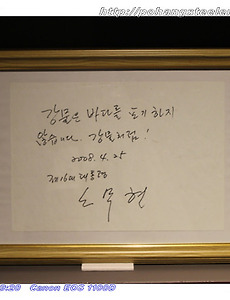 http://pohangsteele
강물은 바다를 포기하지
않습니다. 강물처럼!
2008. 4. 25
제16대 대통령
노무현
3:20 Canon EOS 1100D